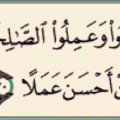 وَعَمِلُوا۟ ٱلصَّـٰلِحَـ
أَحْسَنَ عَمَلًا